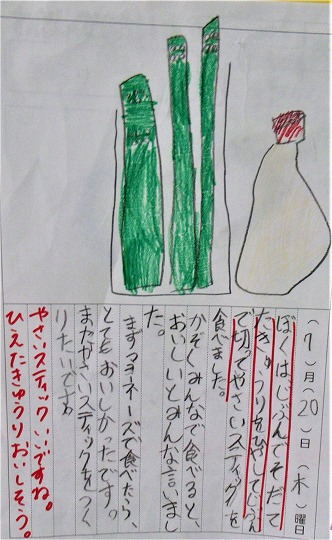 (7)月20日(木)曜日
ぼくは、じぶんでそだて
たきゅうりをひやしてじぶん
で切ってやさいスティックを
食べました。
かぞくみんなで食べると、
おいしいとみんな言いまし
た。
まずマヨネーズで食べたら、
とてもおいしかったです。
またやさいスティックをつく
りたいです。
やさいスティックいいですね。
ひえたきゅうりおいしそう。